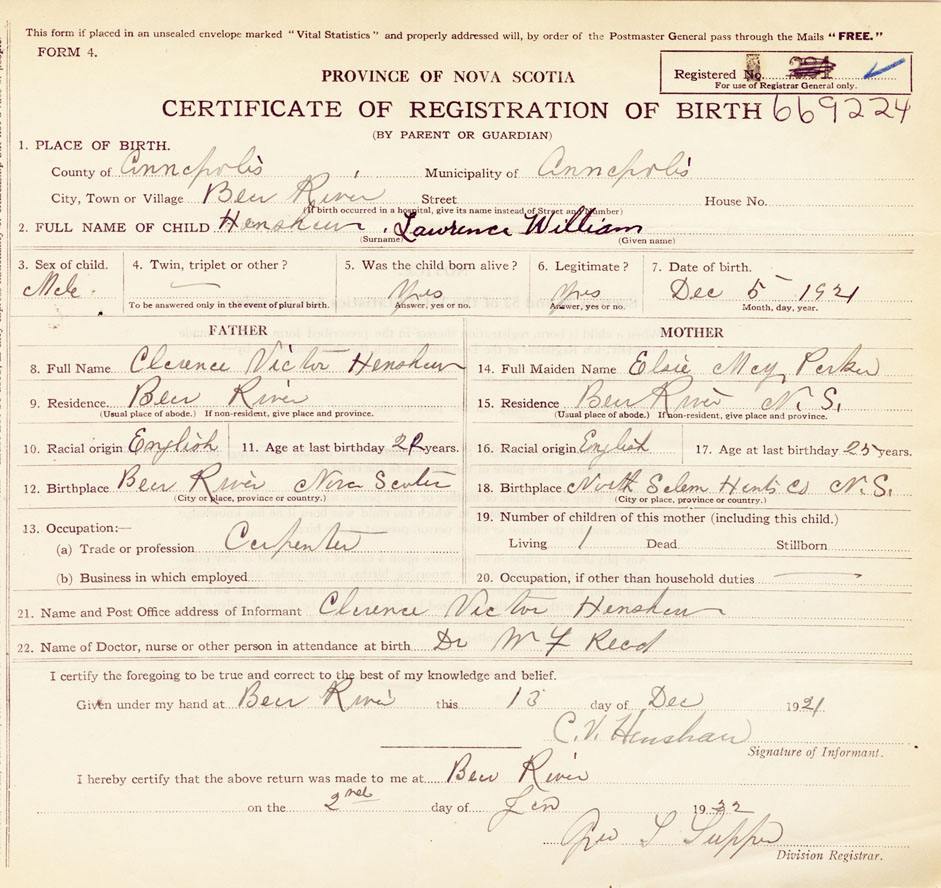 This form if placed in an unsealed envelope marked "Vital Statistics" and properly addressed will, by order of the Postmaster General pass through the Mails "FREE."
FORM 4.
PROVINCE OF NOVA SCOTIA
Registered No.
For use of Registrar General only.
CERTIFICATE OF REGISTRATION OF BIRTH 669224
(BY PARENT OR GUARDIAN)
1. PLACE OF BIRTH.
County of Annapolis Municipality of Annapolis
City, Town or Village Bear River Street House No.
(If birth occurred in a hospital, give its name instead of Street and Number)
2. FULL NAME OF CHILD Henshaw, Lawrence William
(Surname) (Given name)
3. Sex of child. 4. Twin, triplet or other? 5. Was the child born alive? 6. Legitimate? 7. Date of birth.
Male. Yes Yes Dec 5 1921
To be answered only in the event of plural birth. Answer, yes or no. Answer, yes or no. Month, day, year.
FATHER MOTHER
8. Full Name Clarence Victor Henshaw 14. Full Maiden Name Elsie May Parker
9. Residence Bear River 15. Residence Bear River N. S.
(Usual place of abode.) If non-resident, give place and province. (Usual place of abode.) If non-resident, give place and province.
10. Racial origin English 11. Age at last birthday years. 16. Racial origin English 17. Age at last birthday 25 years.
12. Birthplace Bear River Nova Scotia 18. Birthplace North Salem Hants Co N. S.
(City or place, province or country.) (City or place, province or country.)
13. Occupation:— 19. Number of children of this mother (including this child.)
(a) Trade or profession Carpenter Living 1 Dead Stillborn
(b) Business in which employed 20. Occupation, if other than household duties
21. Name and Post Office address of Informant Clarence Victor Henshaw
22. Name of Doctor, nurse or other person in attendance at birth Dr W F Read
I certify the foregoing to be true and correct to the best of my knowledge and belief.
Given under my hand at Bear River this 13 day of Dec 1921
C. V. Henshaw
Signature of Informant.
I hereby certify that the above return was made to me at Bear River
on the 2nd day of Jan 1922
Geo L
Division Registrar.